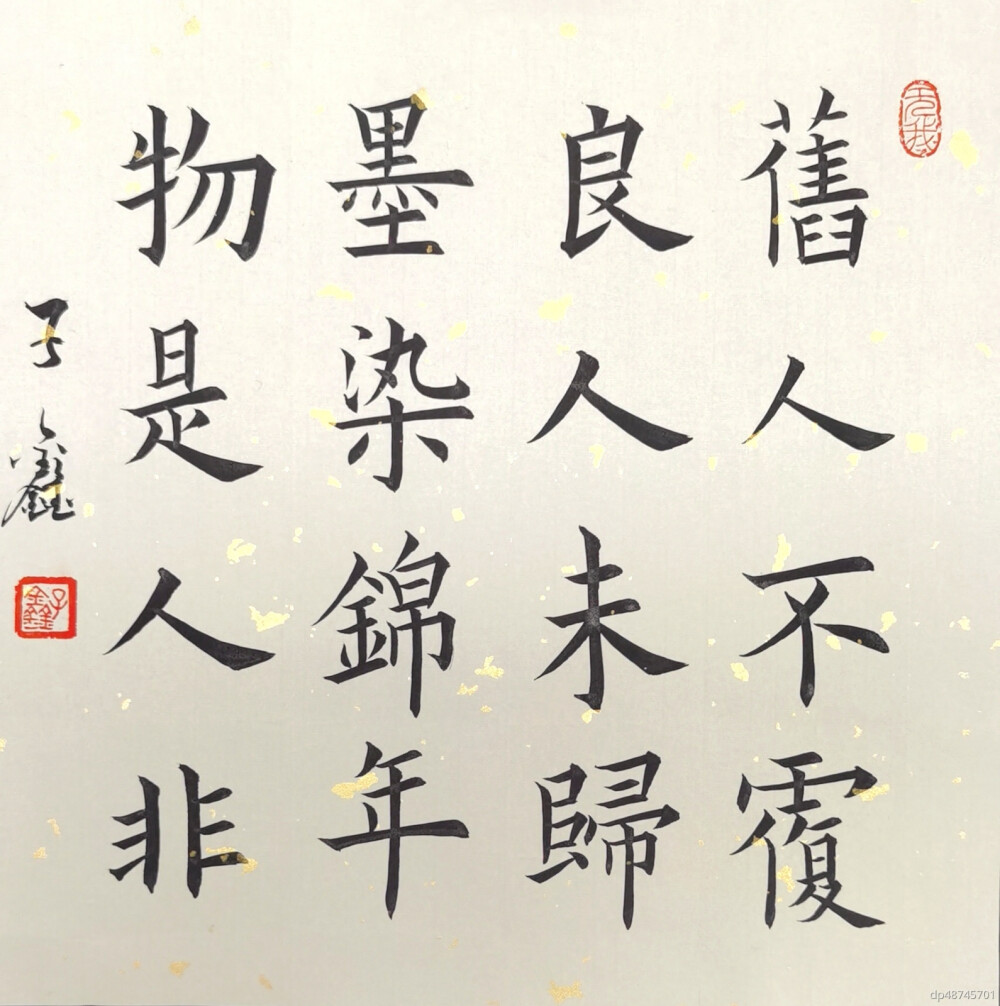 舊人不覆
良人未歸
墨染錦年
物是人非
子鑫
子鑫
dp48745701